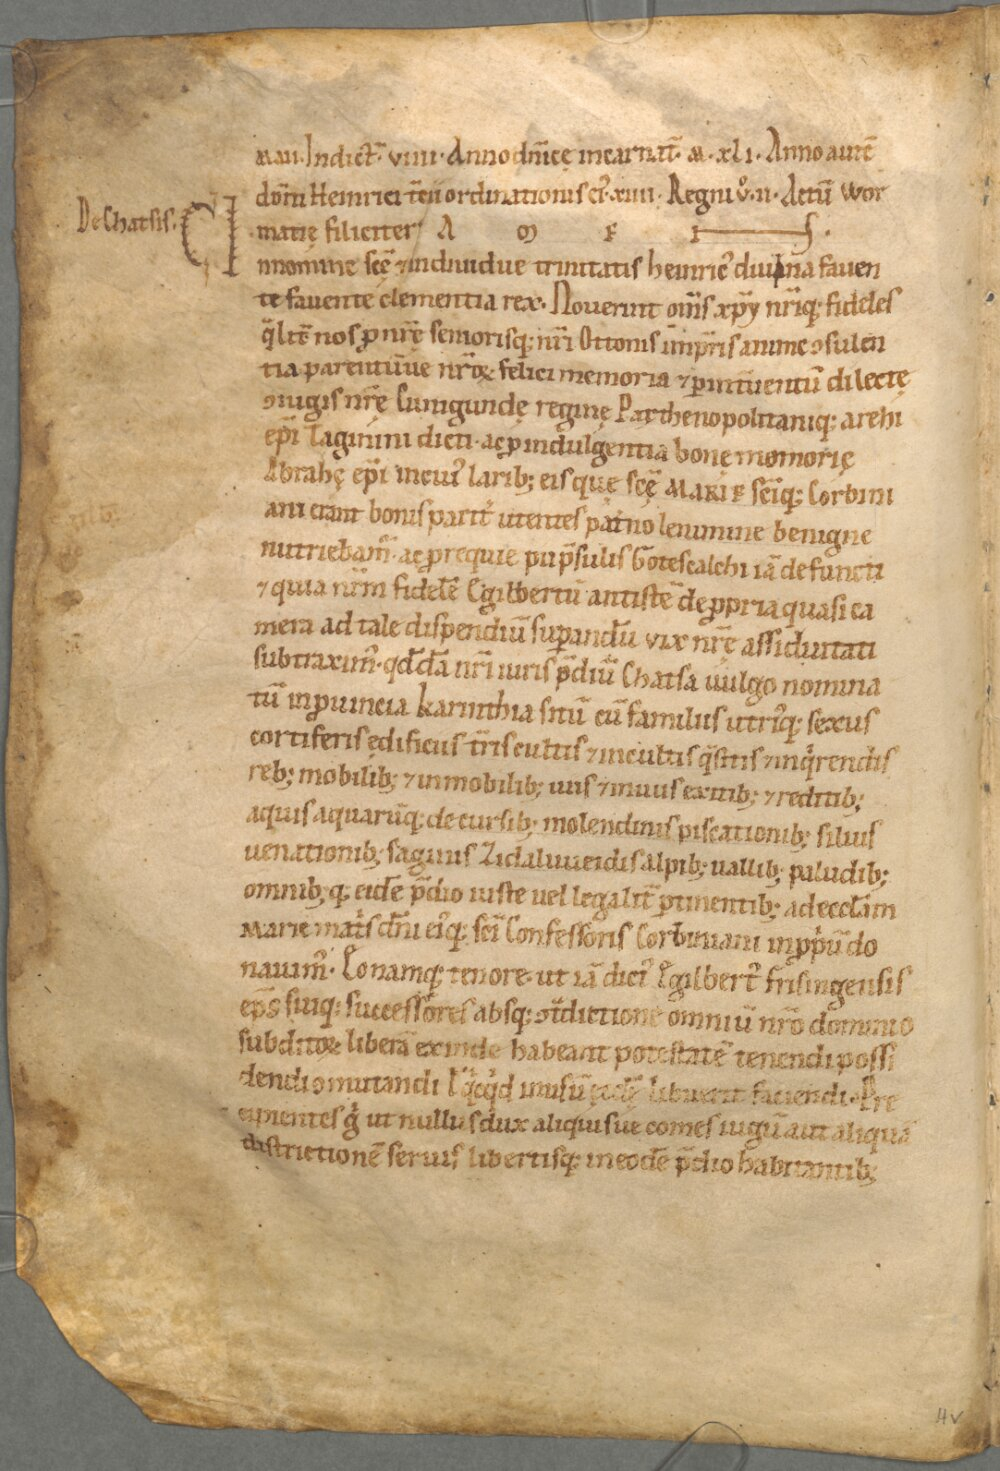 MAII. Indict̄. VIIII. Anno dn̄icę incarnat̄. M. XLI. Anno autē
De Chatsis.
dōni Heinrici t̄cii ordinationis ei᷒ XIIII. Regni v̊. II. Actū Wor
matię filiciter A M E N.
In nomine scę̄ & individue trinitatis heinric᷒ divina faven
te favente clementia rex. Noverint om̄s xp̄i nr̄iq; fideles
q̄lit̄ nos ꝓ nr̄ę seniorisq; nr̄i Ottonis imp̄ris anime ɔsulen
tia parentūve nr̄oꝝ felici memoria & ꝑ intventū dilectę
ɔiugis nr̄ę Cunigundę reginę Parthenopolitaniq; archi
ep̄i Taginini dicti. ac ꝓ indulgentia bone momorię
Abrahę ep̄i in cui᷒ larib; eisque scę̄ MARIE sc̄iq; Corbini
ani etiam bonis parit̄ utentes patno lenimine benigne
nutriebam᷒. ac ꝓ requie pii p̄sulis Gotescalchi iā defuncti
& quia nr̄m fidelē Egilbertū antistē de ꝓpria quasi ca
mera ad tale dispendiū suꝑandū vix nr̄ę assiduitati
subtraxim᷒. qd̄dā nr̄i iuris p̄diū Chatsa vulgo nomina
tū in ꝓvincia karinthia sitū cū familiis utri᷒q; sexus
cortiferis ędificiis t̄ris cultis & incultis q̄sitis & inq̄rendis
reb; mobilib; & inmobilib; viis & inviis exitib; & reditib;
aquis aquarūq; decursib; molendinis piscationib; silvis
venationib; saginis Zidaluueidis alpib; vallib; paludib;
omnib; q; eidē p̄dio iuste vel legalit̄ ꝑtinentib; ad ecclām
Marie mat̄s dn̄i ei᷒q; sc̄i Confessoris Corbiniani in ꝓpriū do
navim᷒. Eo namq; tenore. ut iā dict᷒ Egilbert᷒ frisingensis
ep̄s suiq; successores absq; ɔt̄dictione omniū nr̄o dominio
subditoꝝ liberā exinde habeant potestatē tenendi possi
dendi ɔmutandi ł q̄cq̄d libuerit faciendi. Pre
cipientes g̊ ut nullus dux aliquisve comes iugū aut aliquā
districtionē servis libertisq; in eodē p̄dio habitantib;
4v